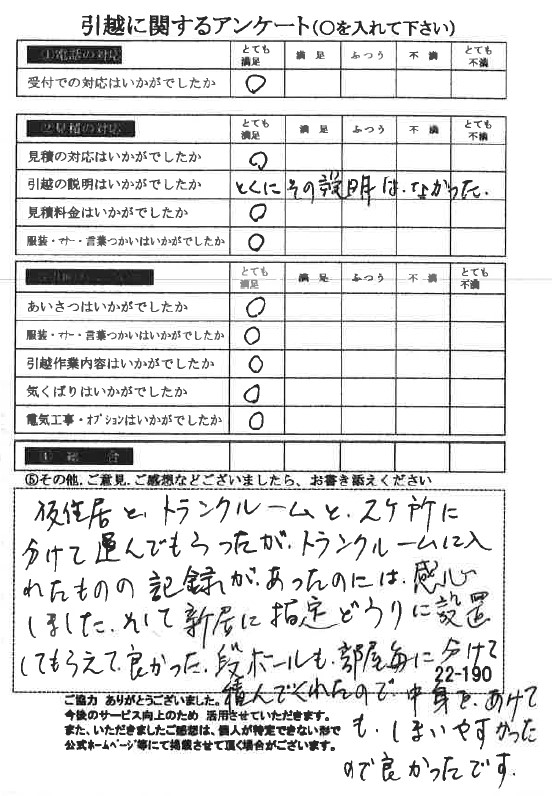 引越に関するアンケート(○を入れて下さい)
①電話の対応 とても満足 満足 ふつう 不満 とても不満
受付での対応はいかがでしたか ○
②見積の対応 とても満足 満足 ふつう 不満 とても不満
見積の対応はいかがでしたか ○
引越の説明はいかがでしたか とくにその説明は、なかった。
見積料金はいかがでしたか ○
服装・マナー・言葉つかいはいかがでしたか ○
とても満足 満足 ふつう 不満 とても不満
あいさつはいかがでしたか ○
服装・マナー・言葉つかいはいかがでしたか ○
引越作業内容はいかがでしたか ○
気くばりはいかがでしたか ○
電気工事・オプションはいかがでしたか ○
④総合
⑤その他、ご意見、ご感想などございましたら、お書き添えください
仮住居と、トランクルームと、2ケ所に
分けて運んでもらったが、トランクルームに入
れたものの記録が、あったのには、感心
しました。そして新居に指定どうりに設置
してもらえて、良かった。段ボールも、部屋毎に分けて
22-190
積んでくれたので、中身を、あけて
も、しまいやすかった
ので良かったです。
ご協力 ありがとうございました。
今後のサービス向上のため 活用させていただきます。
また、いただきましたご感想は、個人が特定できない形で
公式ホームページ等にて掲載させて頂く場合がございます。